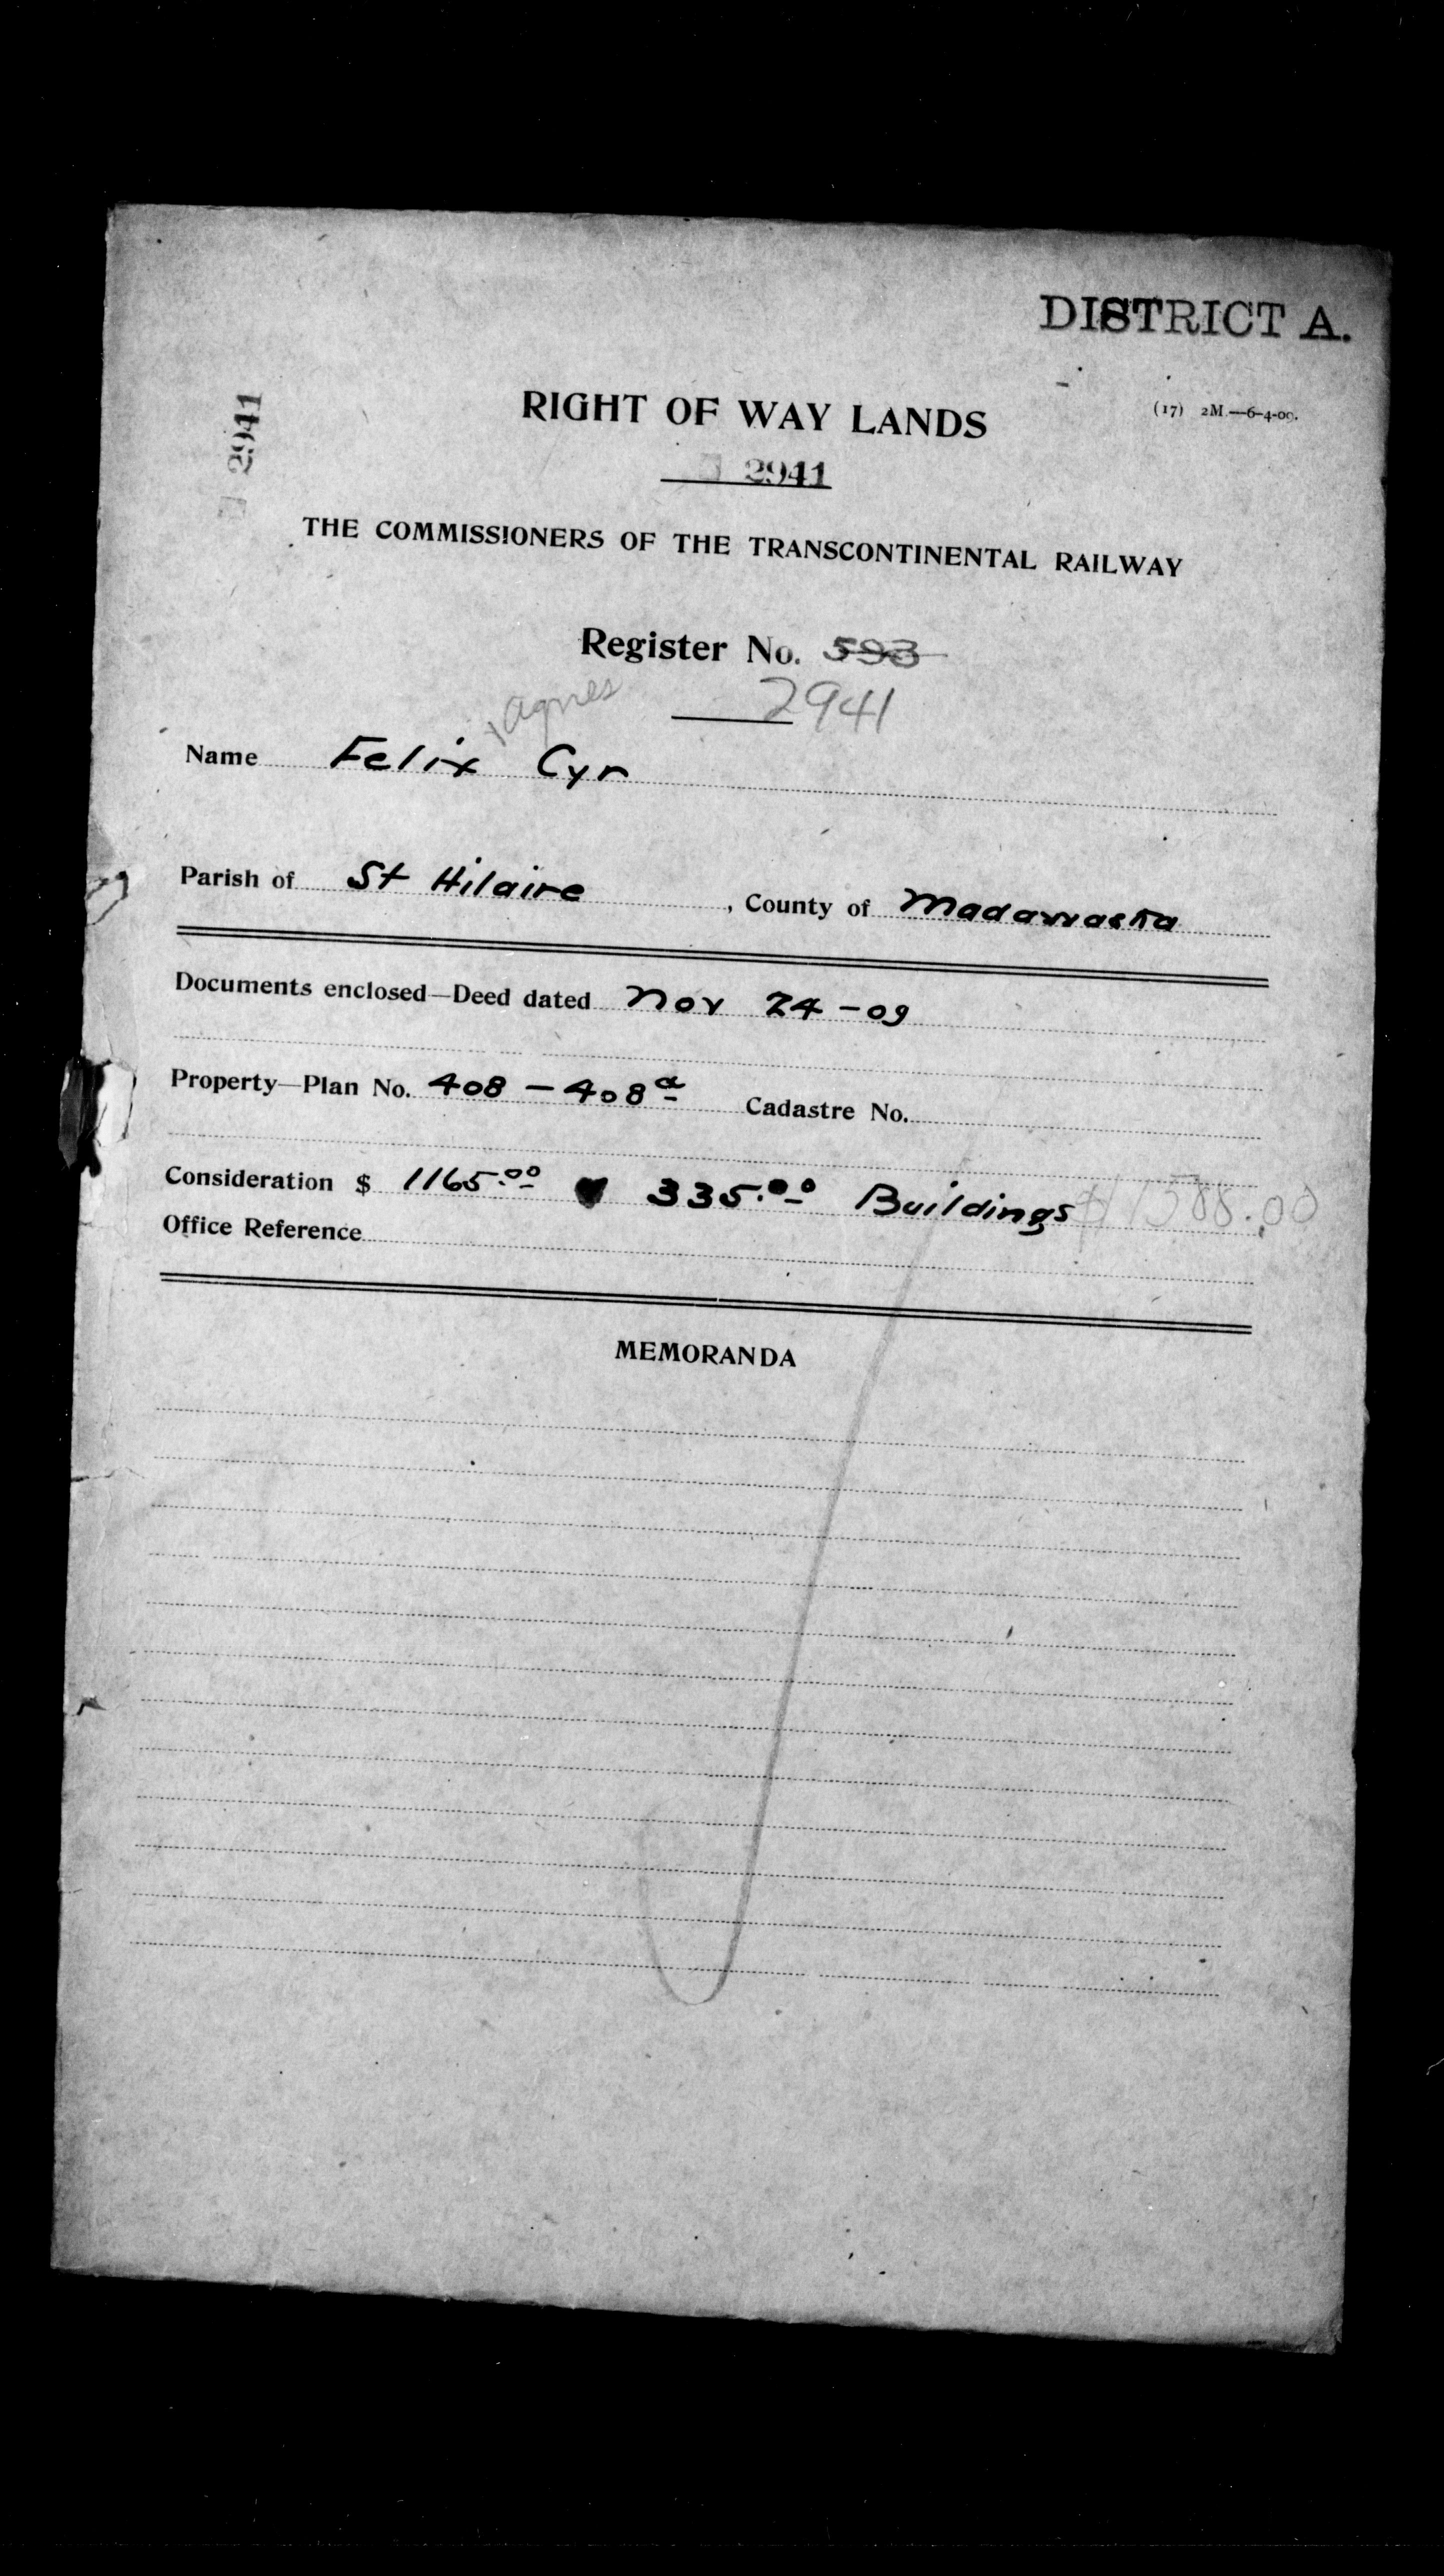 DISTRICT A.
(17) 2M.—6-4-09.
2941
RIGHT OF WAY LANDS
2941
THE COMMISSIONERS OF THE TRANSCONTINENTAL RAILWAY
Register No. 593
2941
Agnes
Name Felix Cyr
Parish of St Hilaire, County of Madawaska
Documents enclosed—Deed dated Nov 24-09
Property—Plan No. 408 - 408a Cadastre No.
Consideration $ 1165.00 335.00 Buildings $1588.00
Office Reference
MEMORANDA